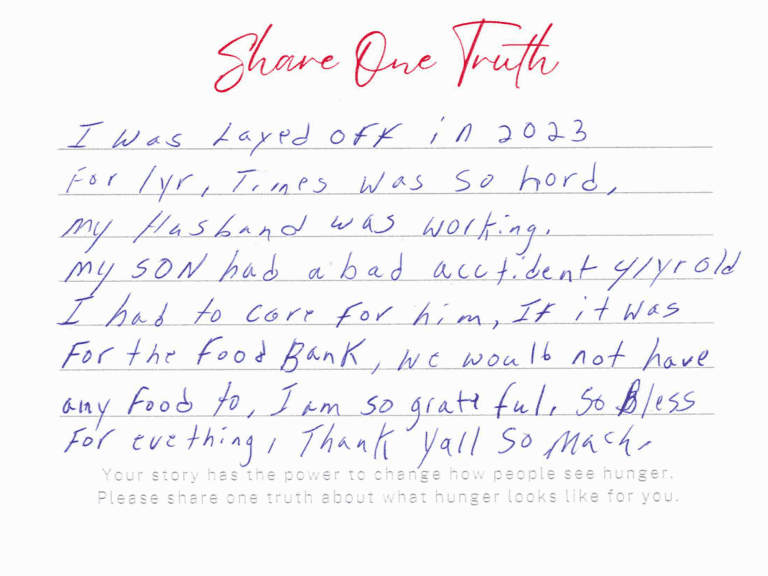 Share One Truth
I was Layed off in 2023
For 1yr, Times was so hord,
my Husband was working.
my SON had a bad acctident 41yr old
I had to care for him, If it was
For the food Bank, we woulb not have
any food to, I am so grateful, So Bless
For evething, Thank Yall So Mach,
Your story has the power to change how people see hunger.
Please share one truth about what hunger looks like for you.